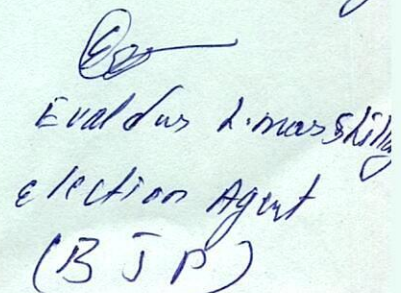 Evaldus L. mawshilla
Election Agent
(BJP)